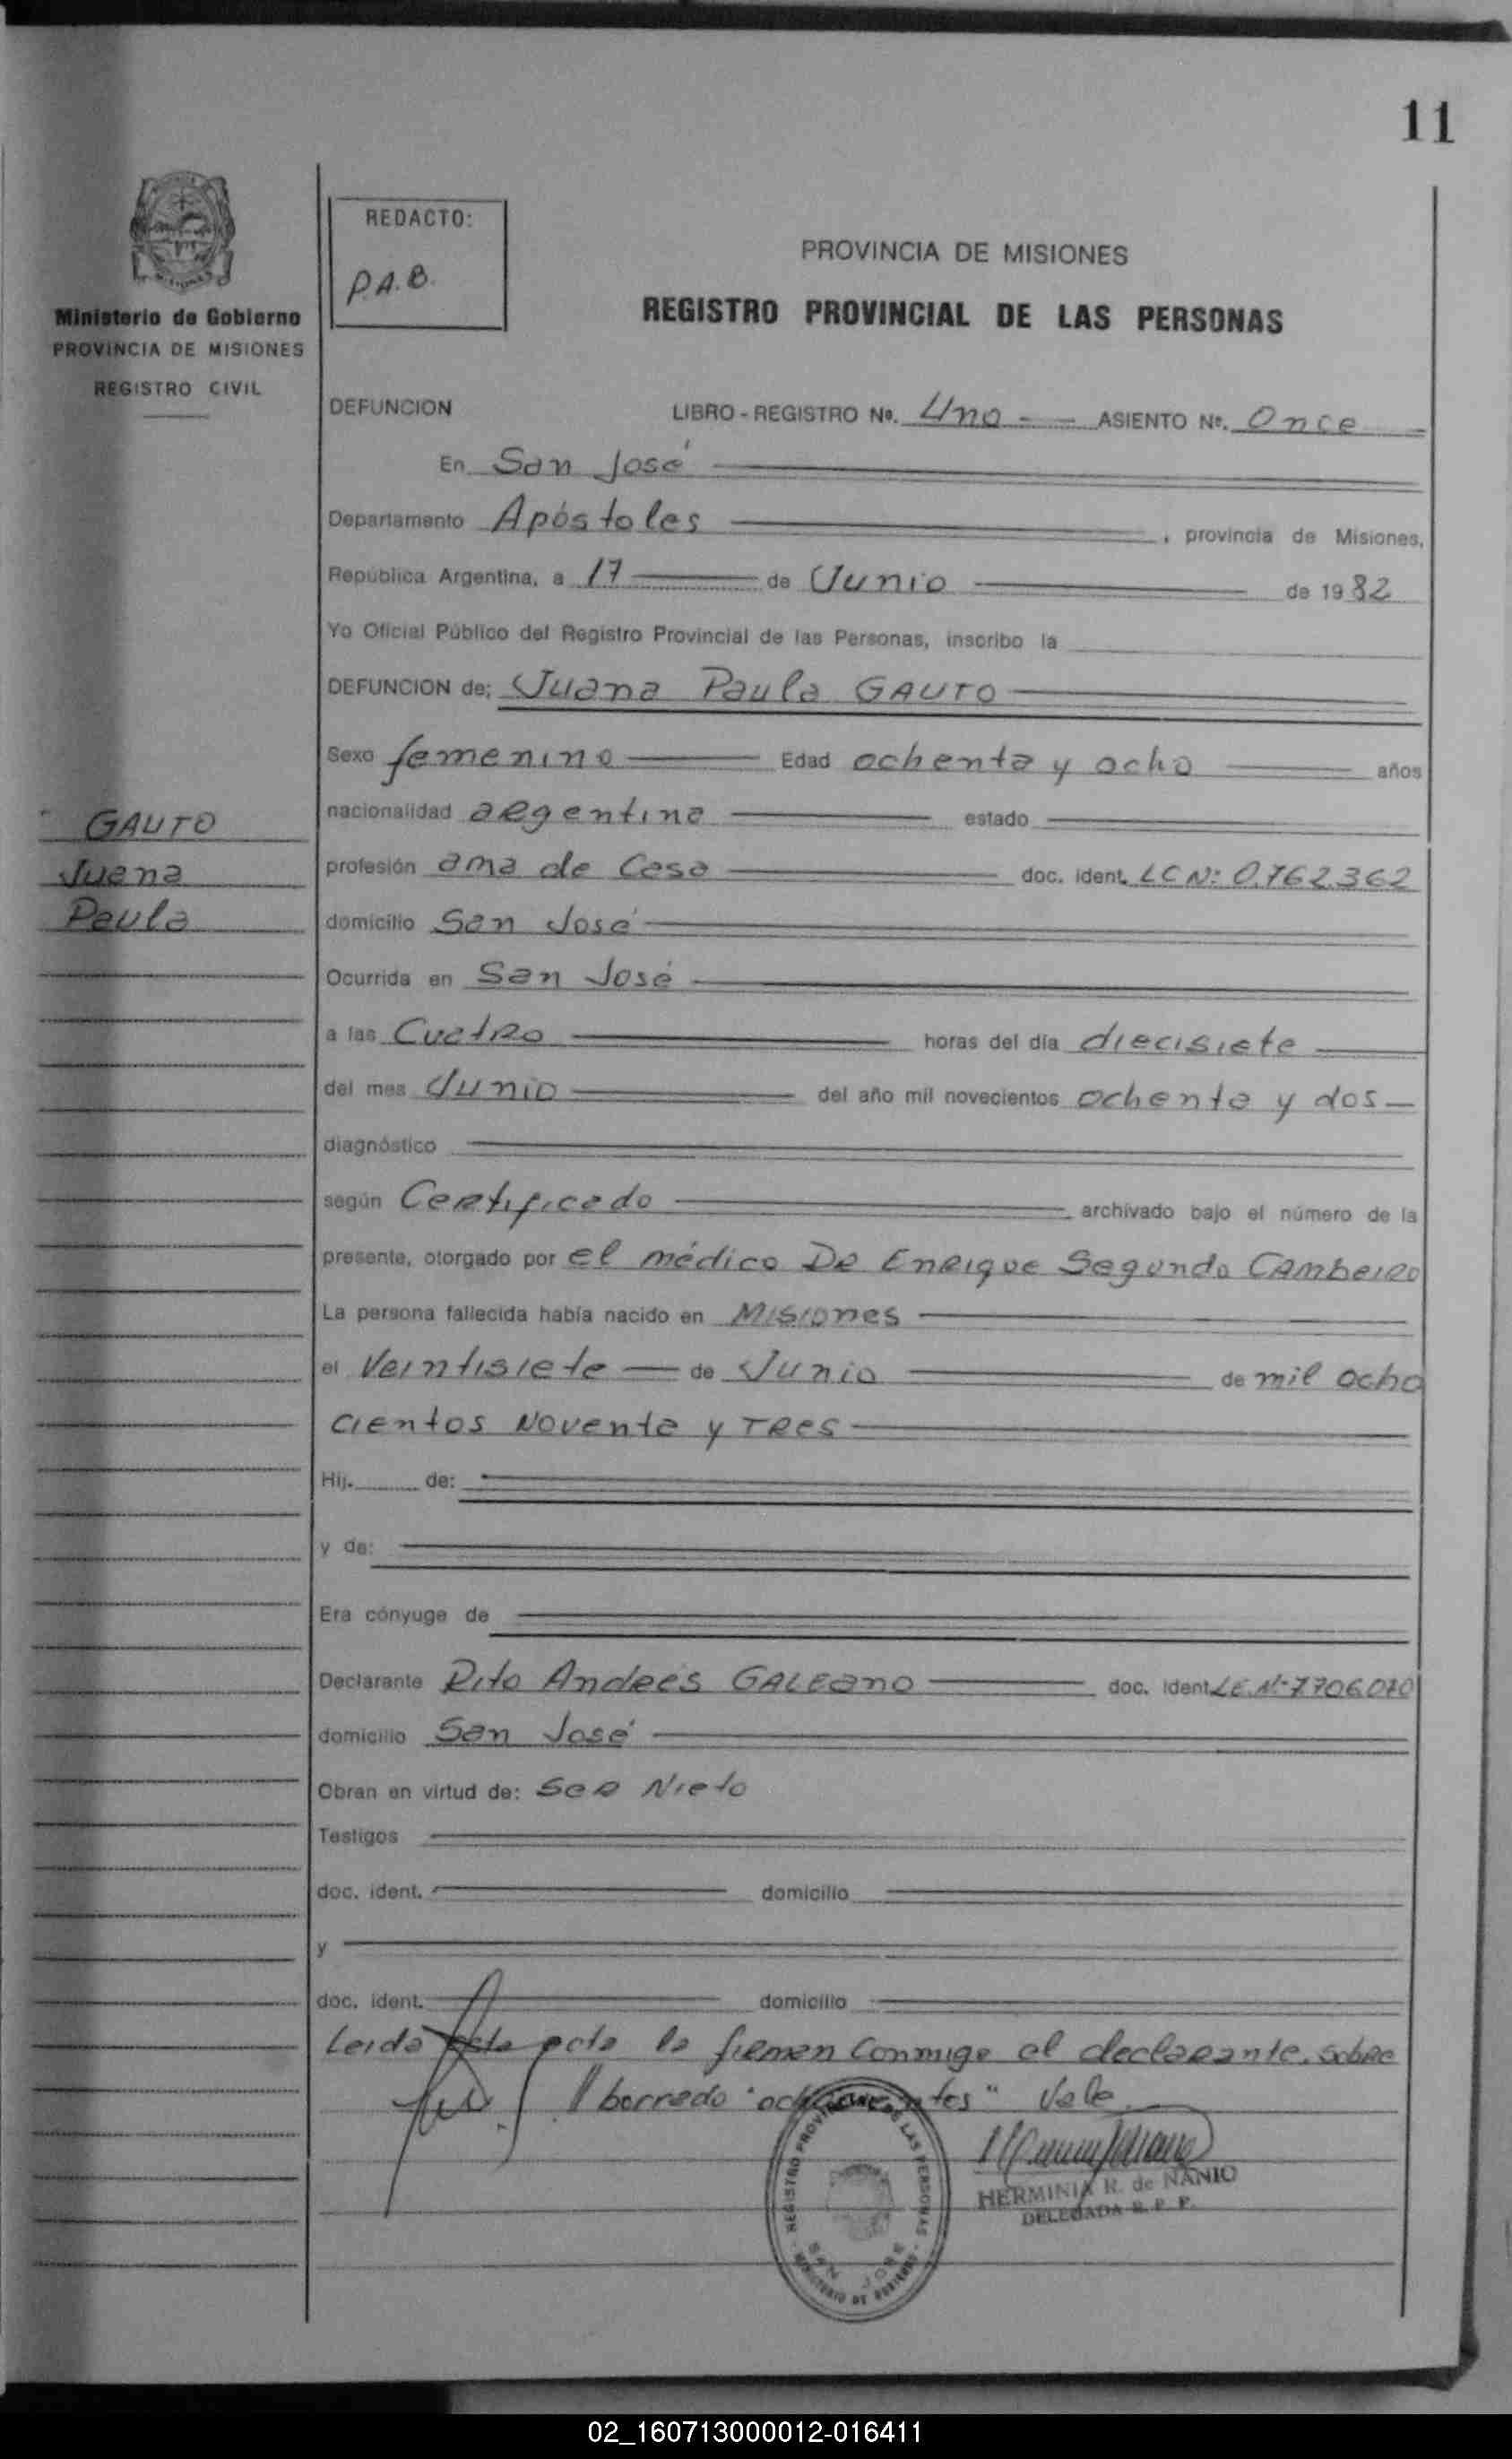 11
REDACTO:
P.A.B.
PROVINCIA DE MISIONES
REGISTRO PROVINCIAL DE LAS PERSONAS
Ministerio de Gobierno
PROVINCIA DE MISIONES
REGISTRO CIVIL
DEFUNCION LIBRO - REGISTRO Nº. Uno ASIENTO Nº. Once
En San José
Departamento Apóstoles, provincia de Misiones,
República Argentina, a 17 de Junio de 1982
Yo Oficial Público del Registro Provincial de las Personas, inscribo la
DEFUNCION de: Juana Paula GAUTO
Sexo femenino Edad ochenta y ocho años
nacionalidad argentina estado
profesión ama de Casa doc. ident. LC Nº: 0.762.362
domicilio San José
Ocurrida en San José
a las Cuatro horas del día diecisiete
del mes Junio del año mil novecientos ochenta y dos
diagnóstico
según Certificado archivado bajo el número de la
presente, otorgado por el médico DR Enrique Segundo CAMbeiro
La persona fallecida había nacido en Misiones
el Veintisiete de Junio de mil ocho
cientos Noventa y Tres
Hij. de:
y de:
Era cónyuge de
Declarante Rito Andrés GALEano doc. ident. LE. Nº 7706070
domicilio San José
Obran en virtud de: Ser Nieto
Testigos
doc. ident. domicilio
y
doc. ident. domicilio
Leida este acta la firman Conmigo el declarante. sobre
borrado "ochocientos" Vale
GAUTO
Juana
Paula
REGISTRO PROVINCIAL DE LAS PERSONAS
SAN JOSE
MINISTERIO DE GOBIERNO
HERMINIA R. de NANIO
DELEGADA R. P. P.
02_160713000012-016411